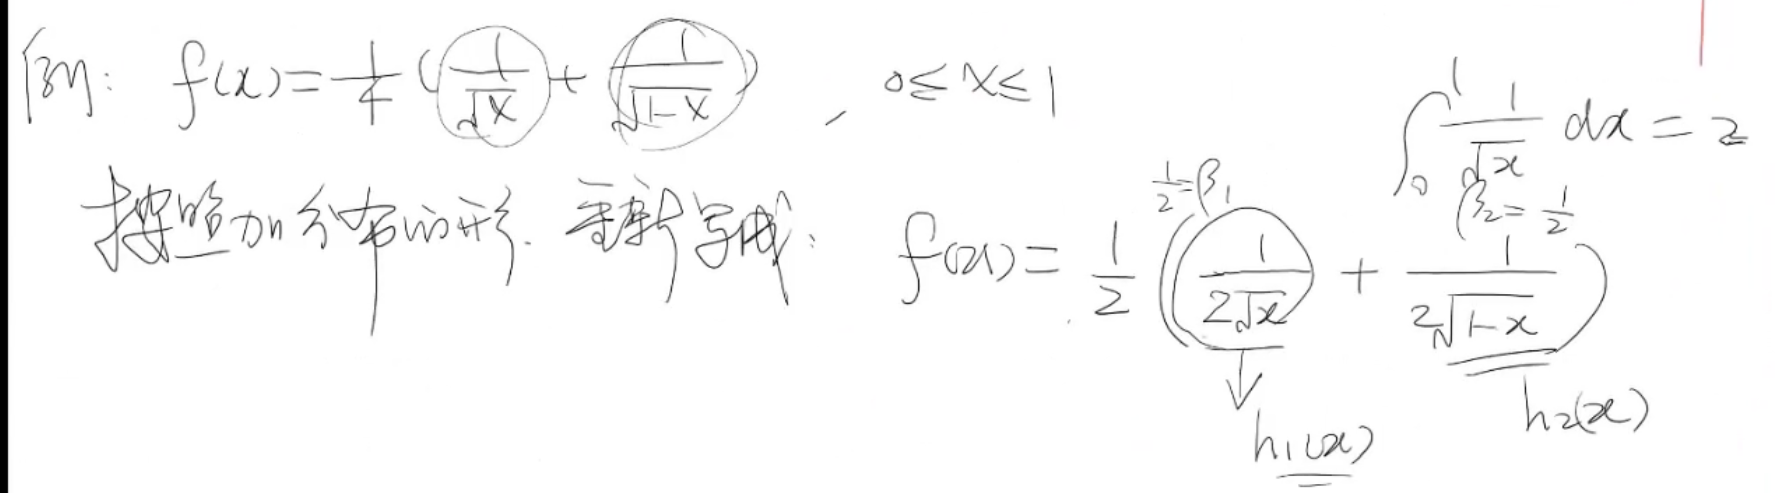 例: f(x)=1/4(1/√x + 1/√(1-x)), 0≤x≤1
∫₀¹ 1/√x dx = 2
按照加分布的形. 重新写成: f(x)= 1/2 (1/(2√x) + 1/(2√(1-x)))
1/2=β₁ β₂=1/2
h₁(x) h₂(x)